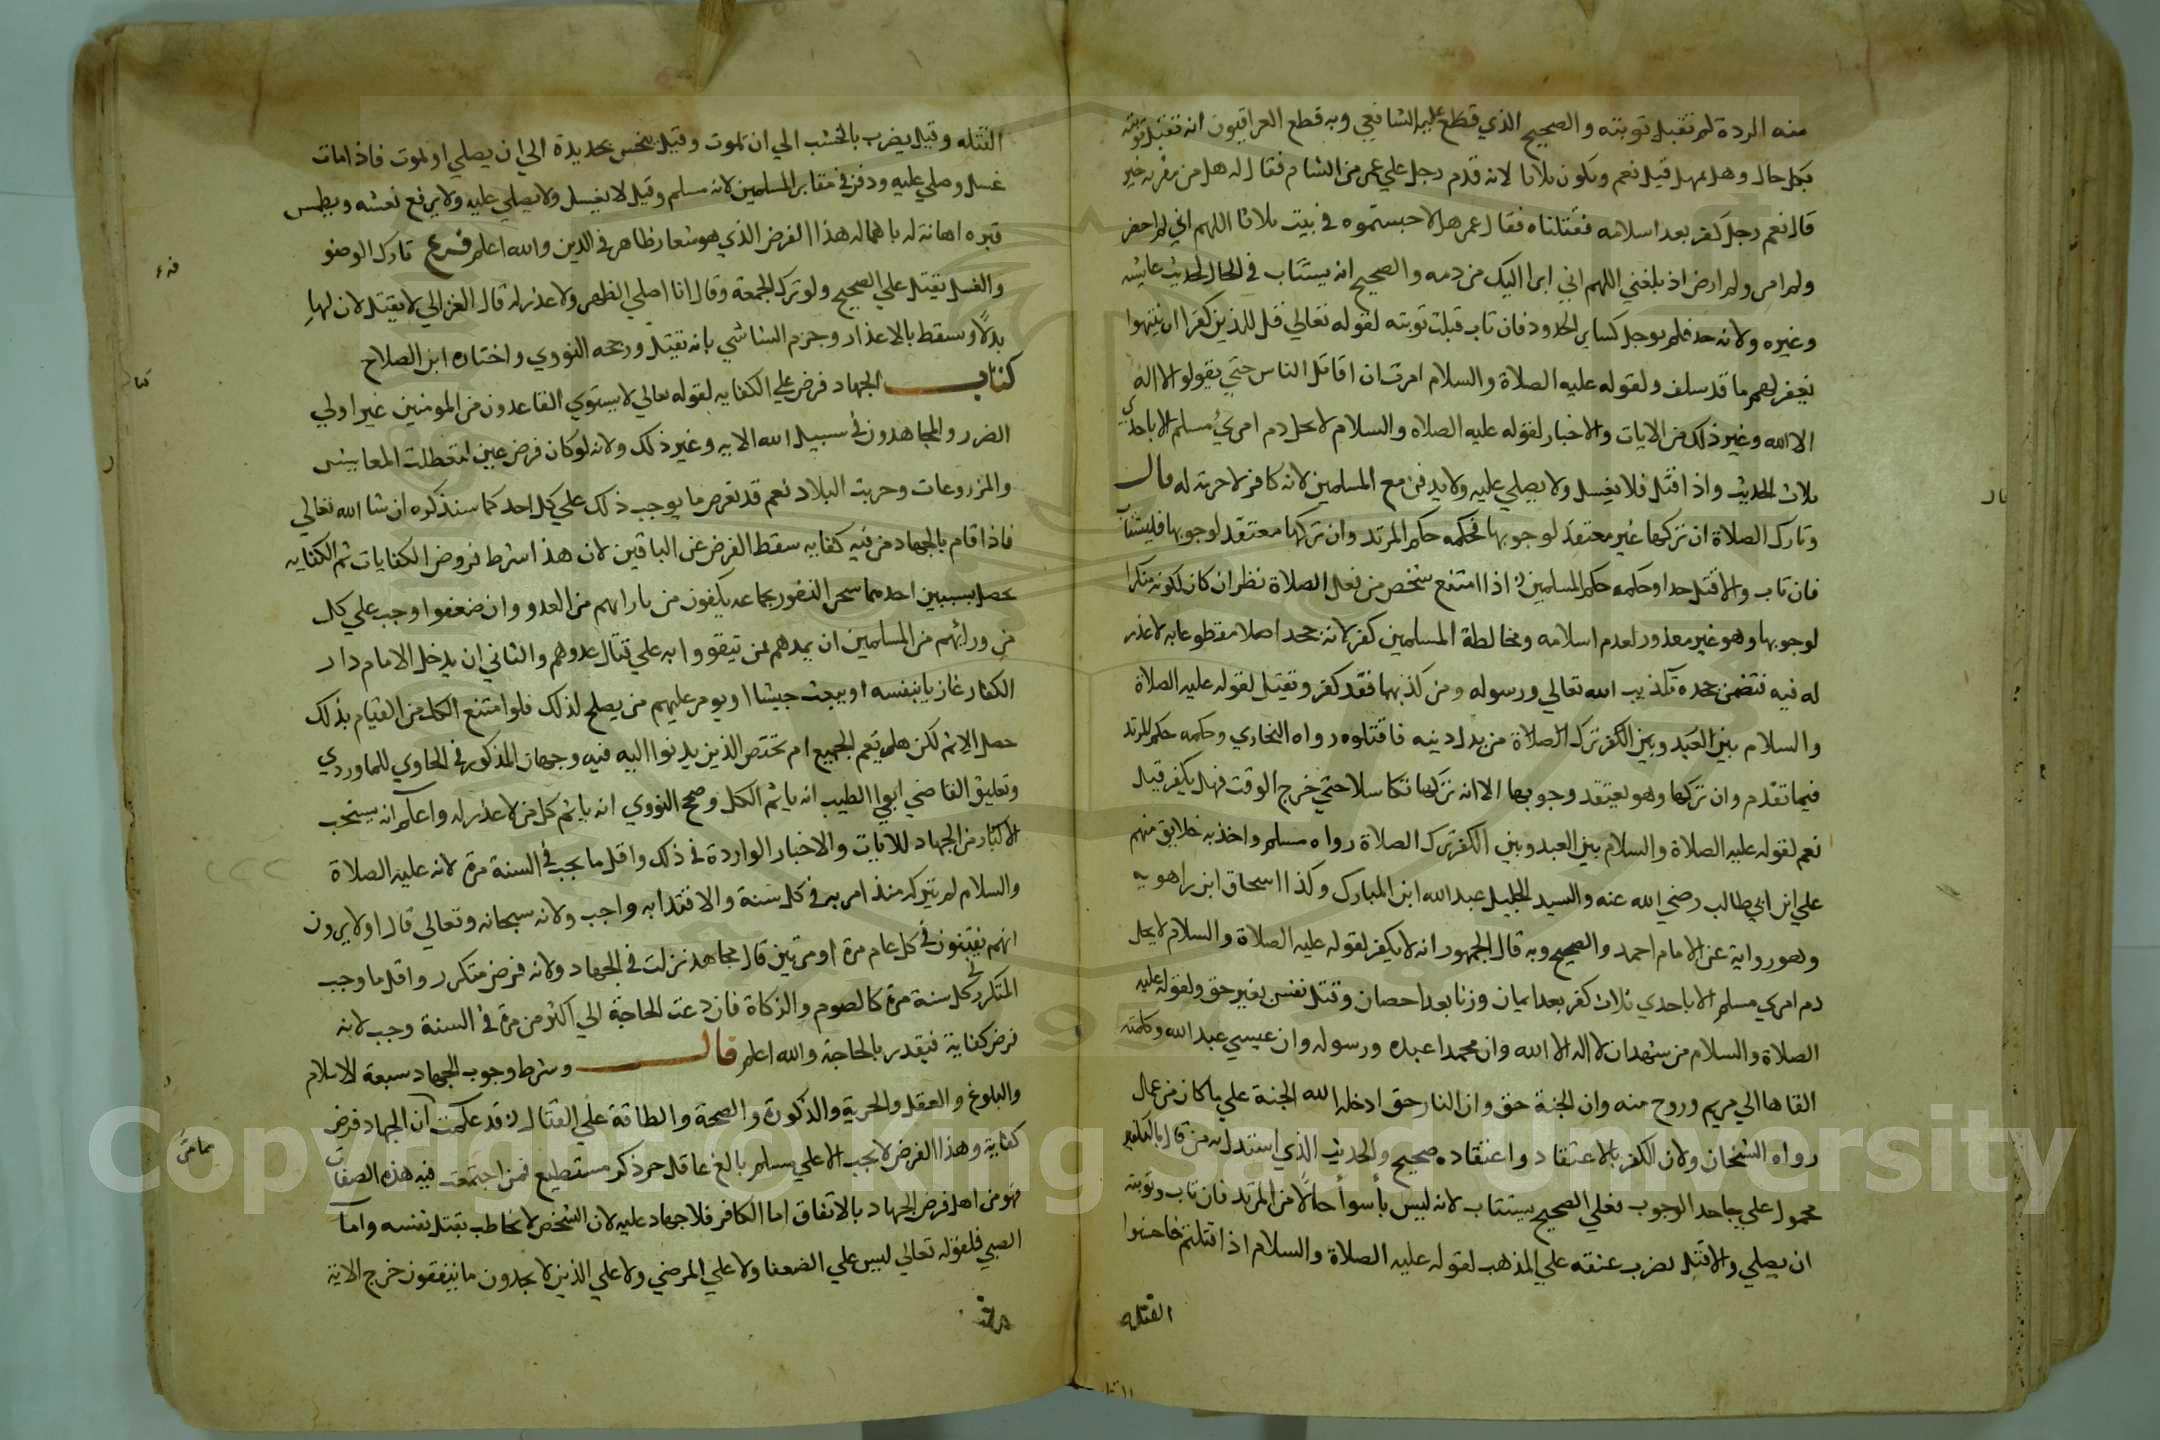 منه الردة لم تقبل توبته والصحيح الذي قطع عليه الشافعي وبه قطع العراقيون انه تقبل توبته
بكل حال وهل يمهل قيل نعم ويكون ثلاثا لانه قدم رجل علي عمر من الشام فقال له هل من مغربة خبر
قال نعم رجل كفر بعد اسلامه فقتلناه فقال عمر هلا حبستموه في بيت ثلاثا اللهم اني لم احضر
ولم امر ولم ارض اذ بلغني اللهم اني ابرا اليك من دمه والصحيح انه يستتاب في الحال لحديث عايشه
وغيره ولانه حد فلم يوجل كساير الحدود فان تاب قبلت توبته لقوله تعالي قل للذين كفروا ان ينتهوا
يغفر لهم ما قد سلف ولقوله عليه الصلاة والسلام امرت ان اقاتل الناس حتي يقولوا لا اله
الا الله وغير ذلك من الايات والاخبار لقوله عليه الصلاه والسلام لا يحل دم امريء مسلم الا باحدي
ثلاث الحديث واذا قتل فلا يغسل ولا يصلي عليه ولا يدفن مع المسلمين لانه كافر لا حرمة له قال
وتارك الصلاة ان تركها غير معتقد لوجوبها فحكمه حكم المرتد وان تركها معتقد لوجوبها فليستتاب
فان تاب والا قتل حدا وحكمه حكم المسلمين اذا امتنع شخص من فعل الصلاة نظر ان كان لكونه منكرا
لوجوبها وهو غير معذور لعدم اسلامه ومخالطة المسلمين كفر لانه جحد اصلا مقطوعا به لا عذر
له فيه فتضمن جحده تكذيب الله تعالي ورسوله ومن كذبهما فقد كفر ويقتل لقوله عليه الصلاة
والسلام بين العبد وبين الكفر ترك الصلاة من بدل دينه فاقتلوه رواه البخاري وحكمه حكم المرتد
فيما تقدم وان تركها وهو يعتقد وجوبها الا انه تركها تكاسلا حتي خرج الوقت فهل يكفر قيل
نعم لقوله عليه الصلاة والسلام بين العبد وبين الكفر ترك الصلاة رواه مسلم واخذ به خلايق منهم
علي ابن ابي طالب رضي الله عنه والسيد الجليل عبد الله ابن المبارك وكذا اسحاق ابن راهويه
وهو رواية عن الامام احمد والصحيح وبه قال الجمهور انه لا يكفر لقوله عليه الصلاة والسلام لا يحل
دم امري مسلم الا باحدي ثلاث كفر بعد ايمان وزنا بعد احصان وقتل نفس بغير حق ولقوله عليه
الصلاة والسلام من شهد ان لا اله الا الله وان محمدا عبده ورسوله وان عيسي عبد الله وكلمته
القاها الي مريم وروح منه وان الجنة حق وان النار حق ادخله الله الجنة علي ما كان من عمل
رواه الشيخان ولان الكفر بالاعتقاد واعتقاده صحيح والحديث الذي استدل به من قال بالتكفير
محمول علي جاحد الوجوب فعلي الصحيح يستتاب لانه ليس بأسوأ حالا من المرتد فان تاب وتوبته
ان يصلي والا قتل بضرب عنقه علي المذهب لقوله عليه الصلاة والسلام اذا قتلتم فاحسنوا
القتله
قال
القتله وقيل يضرب بالخشب الي ان يموت وقيل ينخس بحديدة الي ان يصلي او يموت فاذا مات
غسل وصلي عليه ودفن في مقابر المسلمين لانه مسلم وقيل لا يغسل ولا يصلي عليه ولا يرفع نعشه ويطمس
قبره اهانة له باهماله هذا الفرض الذي هو شعار ظاهر في الدين والله اعلم فرع تارك الوضو
والغسل يقتل علي الصحيح ولو ترك الجمعة وقال انا اصلي الظهر ولا عذر له قال الغزالي لا يقتل لان لها
بدلا وتسقط بالاعذار وجزم الشاشي بانه يقتل ورجحه النووي واختاره ابن الصلاح
كتاب الجهاد فرض علي الكفايه لقوله تعالي لا يستوي القاعدون من المومنين غير اولي
الضرر والمجاهدون في سبيل الله الايه وغير ذلك ولانه لو كان فرض عين لتعطلت المعايش
والمزروعات وخربت البلاد نعم قد تعرض ما يوجب ذلك علي كل احد كما سنذكره ان شا الله تعالي
فاذا قام بالجهاد من فيه كفايه سقط الفرض عن الباقين لان هذا شرط فروض الكفايات ثم الكفايه
تحصل بسببين احدهما شحن الثغور بجماعه يكفون من بازائهم من العدو وان ضعفوا وجب علي كل
من ورائهم من المسلمين ان يمدهم بمن يتقووا به علي قتال عدوهم والثاني ان يدخل الامام دار
الكفار غازيا بنفسه او يبعث جيشا ويومر عليهم من يصلح لذلك فلو امتنع الكل من القيام بذلك
حصل الاثم لكن هل يعم الجميع ام يختص الذين يدنوا اليه فيه وجهان المذكور في الحاوي للماوردي
وتعليق القاضي ابي الطيب انه ياثم الكل وصحح النووي انه ياثم كل من لا عذر له واعلم انه يستحب
الاكثار من الجهاد للايات والاخبار الواردة في ذلك واقل ما يجب في السنة مرة لانه عليه الصلاة
والسلام لم يتركه منذ امر به في كل سنة والاقتدا به واجب ولانه سبحانه وتعالي قال اولا يرون
انهم يفتنون في كل عام مرة او مرتين قال مجاهد نزلت في الجهاد ولانه فرض متكرر واقل ما وجب
المتكرر في كل سنة مرة كالصوم والزكاة فان دعت الحاجة الي اكثر من مرة في السنة وجب لانه
فرض كفاية فيقدر بالحاجة والله اعلم قال وشرط وجوب الجهاد سبعة الاسلام
والبلوغ والعقل والحرية والذكورة والصحة والطاقة علي القتال قد علمت ان الجهاد فرض
كفاية وهذا الفرض لا يجب الا علي مسلم بالغ عاقل حر ذكر مستطيع فمن اجتمعت فيه هذه الصفات
فهو من اهل فرض الجهاد بالاتفاق اما الكافر فلا جهاد عليه لان الشخص لا يخاطب بقتل نفسه واما
الصبي فلقوله تعالي ليس علي الضعفا ولا علي المرضي ولا علي الذين لا يجدون ما ينفقون حرج الاية
فرع
كتاب
Copyright © King Saud University